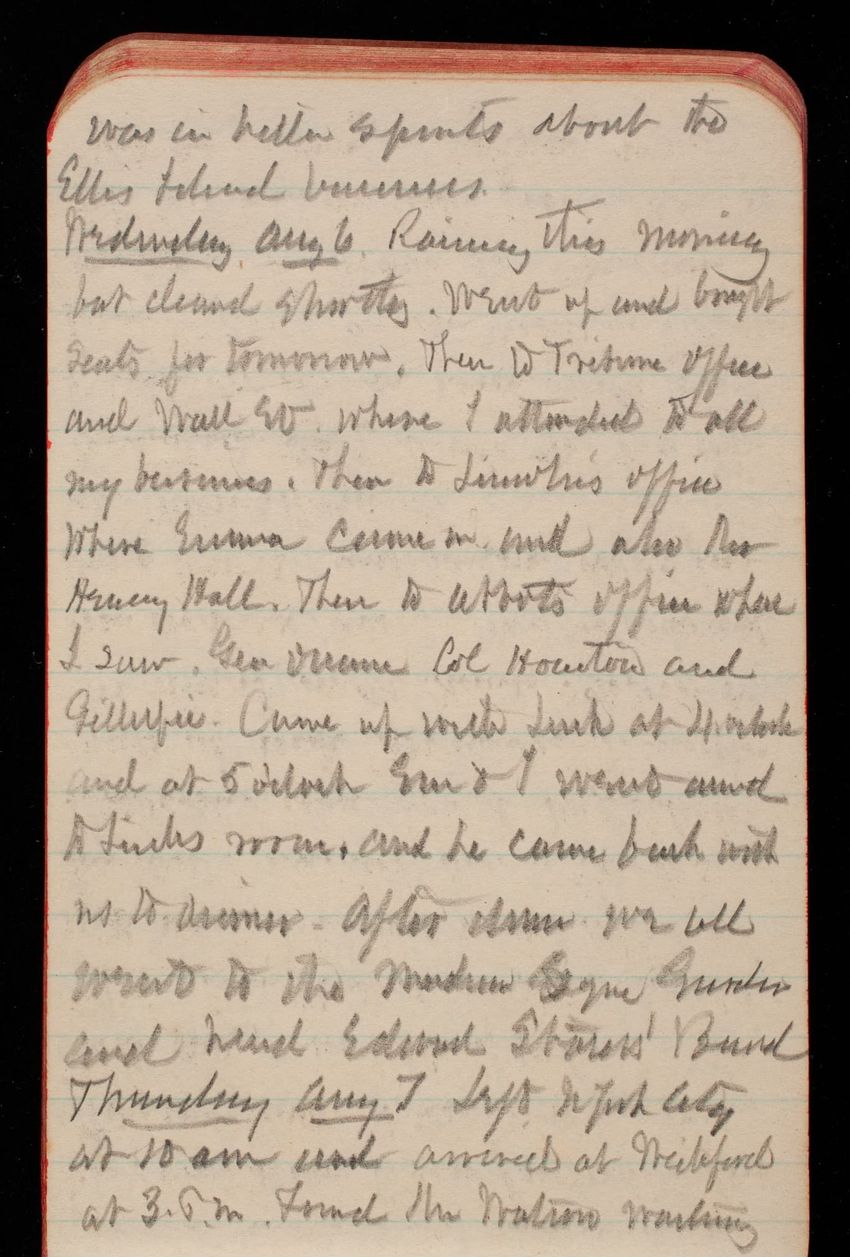 was in better spirits about the
Ellis Island business.
Wednesday Aug 6. Raining this morning
but cleared shortly. Went up and bought
seats for tomorrow. Then to Tribune office
and Wall St. where I attended to all
my business. Then to office
where Emma came in and also
Henry Hall. Then to Abbots office where
I saw. Gen Col Houston and
Gillespie. Came up with Luck at 4 oclock
and at 5 oclock Em & I went around
to Lucks room. and he came back with
us to dinner. After dinner we all
went to the Madison Sqre Garden
and heard Edward Strauss' Band
Thursday Aug 7 Left N York City
at 10 am and arrived at
at 3. P.M. Found Watson waiting